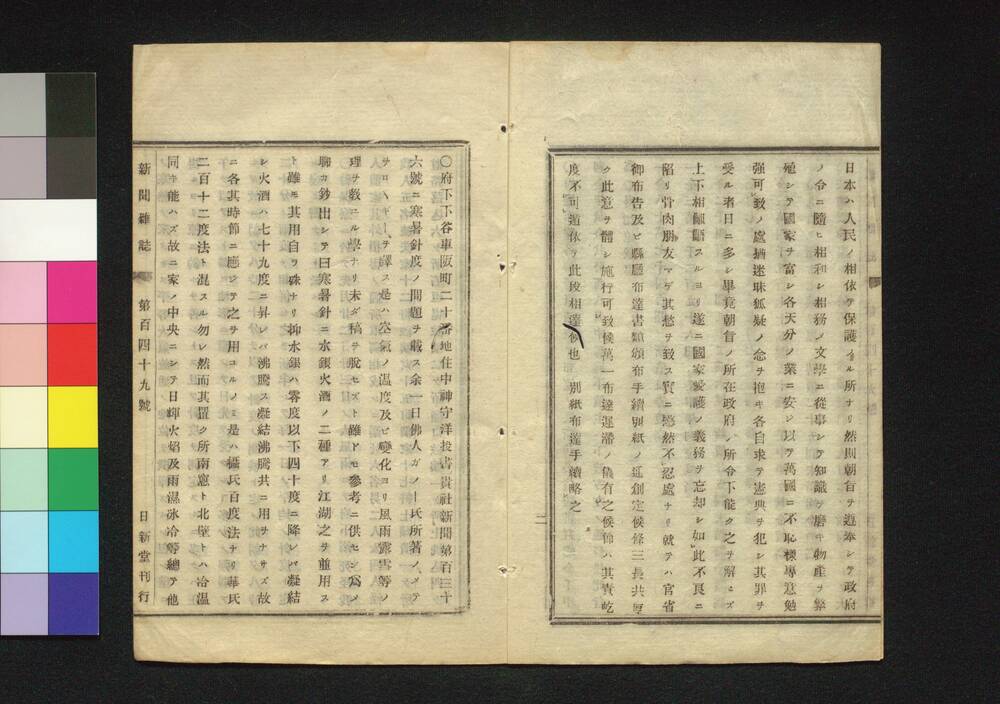 日本ハ人民ノ相依テ保護スル所ナリ然則朝旨ヲ遵奉シテ政府
ノ令ニ隨ヒ相和シ相務メ文學ニ從事シテ知識ヲ磨キ物產ヲ繁
殖シテ國家ヲ富シ各天分ノ業ニ安ジ以テ萬國ニ不恥樣專意勉
强可致ノ處猶迷昧狐疑ノ念ヲ抱キ各自求テ憲典ヲ犯シ其罪ヲ
受ル者日ニ多シ畢竟朝旨ノ所在政府ノ所令下能ク之ヲ解セズ
上下相齟齬スルヨリ遂ニ國家愛護ノ義務ヲ忘却シ如此不良ニ
陷リ骨肉朋友マデ其愁ヲ致ス實ニ愍然不忍處ナリ就テハ官省
御布告及ビ縣廳布達書類頒布手續別紙ノ通創定候條三長共厚
ク此意ヲ體シ施行可致候萬一布達遲滯ノ儀有之候節ハ其責屹
度不可遁依テ此段相達候也 別紙布達手續略之
〇府下下谷車阪町二十番地住中神守洋投書貴社新聞第百三十
六號ニ寒暑針度ノ間題ヲ載ス余一日佛人ガノー氏所著ノメテ
ヲロヽジーヲ譯ス是ハ空氣ノ温度及ビ變化ヨリ風雨霧雪等ノ
理ヲ敎ユル學ナリ未ダ稿ヲ脫セズト雖トモ參考ニ供セン爲メ
聊カ鈔出シテ曰寒暑針ニ水銀火酒ノ二種アリ江湖之ヲ並用ス
ト雖モ其用自ラ殊ナリ抑水銀ハ零度以下四十度ニ降レバ凝結
シ火酒ハ七十九度ニ昇レバ沸騰ス凝結沸騰共ニ用ヲナサズ故
ニ各其時節ニ應ジテ之ヲ用ユルノミ是ハ攝氏百度法ナリ華氏
二百十二度法ト混スル勿レ然而其置ク所南窓ト北壁トハ冷温
同キ能ハズ故ニ家ノ中央ニシテ日輝火焰及雨濕氷冷等總テ他
新聞雜誌 第百四十九號 日新堂刊行